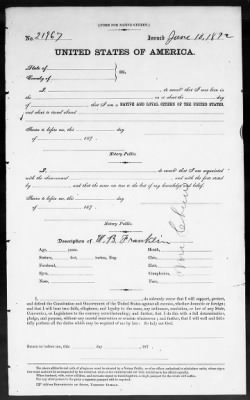 [FORM FOR NATIVE CITIZEN.]
No. 21767 Issued June 10, 1872
UNITED STATES OF AMERICA.
State of
County of ss.
I, , do swear that I was born in
on or about the day
of , that I am a NATIVE AND LOYAL CITIZEN OF THE UNITED STATES,
and about to travel abroad
Sworn to before me, this day
of 187 .
Notary Public.
I, , do swear that I am acquainted
with the above-named and with the facts stated
by and that the same are true to the best of my knowledge and belief.
Sworn to before me, this day
of 187 .
Notary Public.
Description of W. B. Franklin
Age, years. Mouth,
Stature, feet, inches, Eng. Chin,
Forehead, Hair,
Eyes, Complexion,
Nose, Face,
I, do solemnly swear that I will support, protect,
and defend the Constitution and Government of the United States against all enemies, whether domestic or foreign;
and that I will bear true faith, allegiance, and loyalty to the same, any ordinance, resolution, or law of any State,
Convention, or Legislature to the contrary notwithstanding; and further, that I do this with a full determination,
pledge, and purpose, without any mental reservation or evasion whatsoever; and further, that I will well and faith-
fully perform all the duties which may be required of me by law: So help me God.
Sworn to before me, this day 187 .